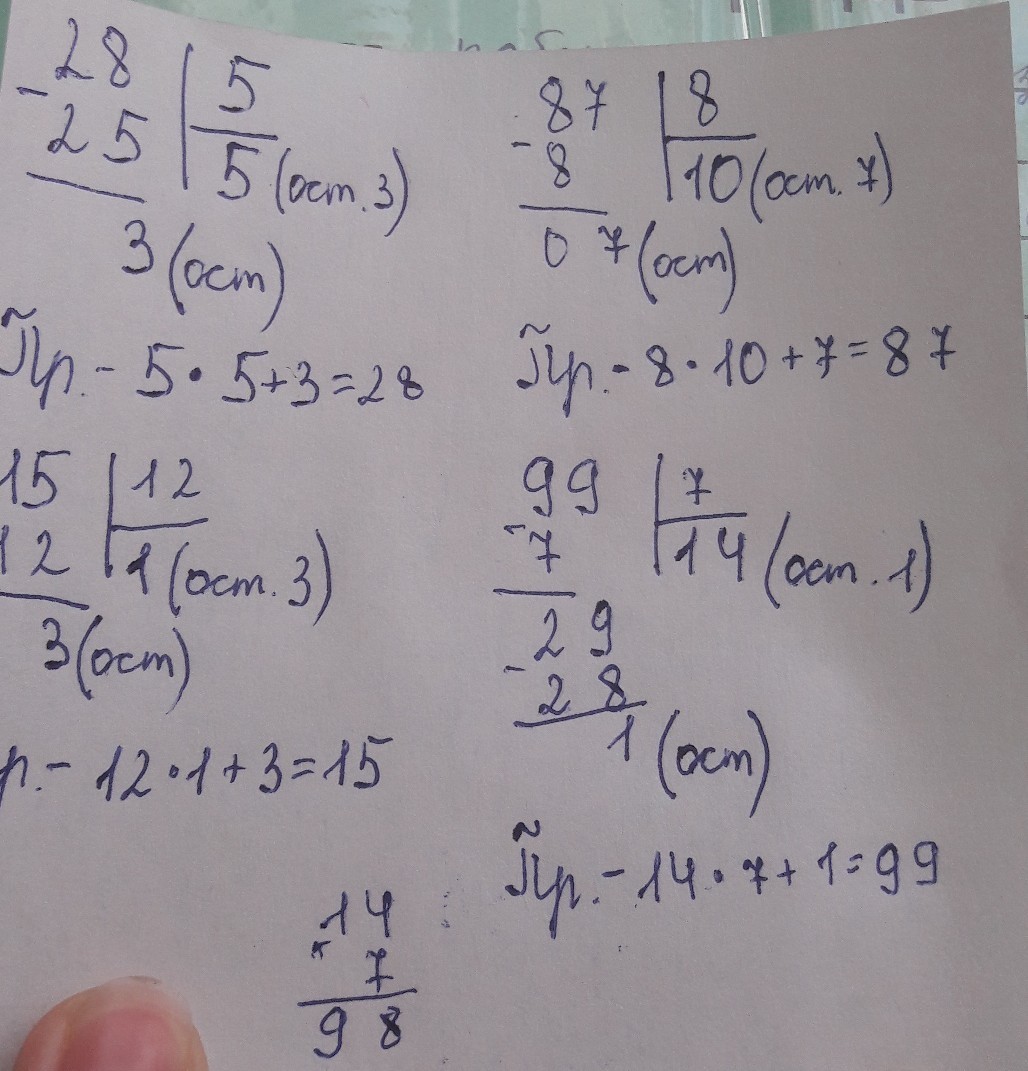 28 | 5
- 25 | 5 (ост. 3)
3 (ост)
Пр. - 5 · 5 + 3 = 28
87 | 8
- 8 | 10 (ост. 7)
0 7 (ост)
Пр. - 8 · 10 + 7 = 87
15 | 12
12 | 1 (ост. 3)
3 (ост)
р. - 12 · 1 + 3 = 15
99 | 7
- 7 | 14 (ост. 1)
29
- 28
1 (ост)
Пр. - 14 · 7 + 1 = 99
14
× 7
98